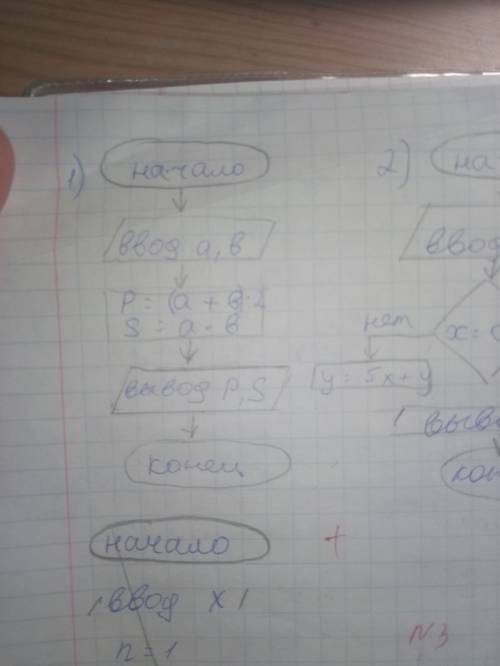 1) начало
ввод a, в
P = (a + в)·2
S = a · в
вывод P, S
конец
2) на
ввод
x =
нет
y = 5x + y
выв
кон
начало
+
ввод x
n = 1
N3